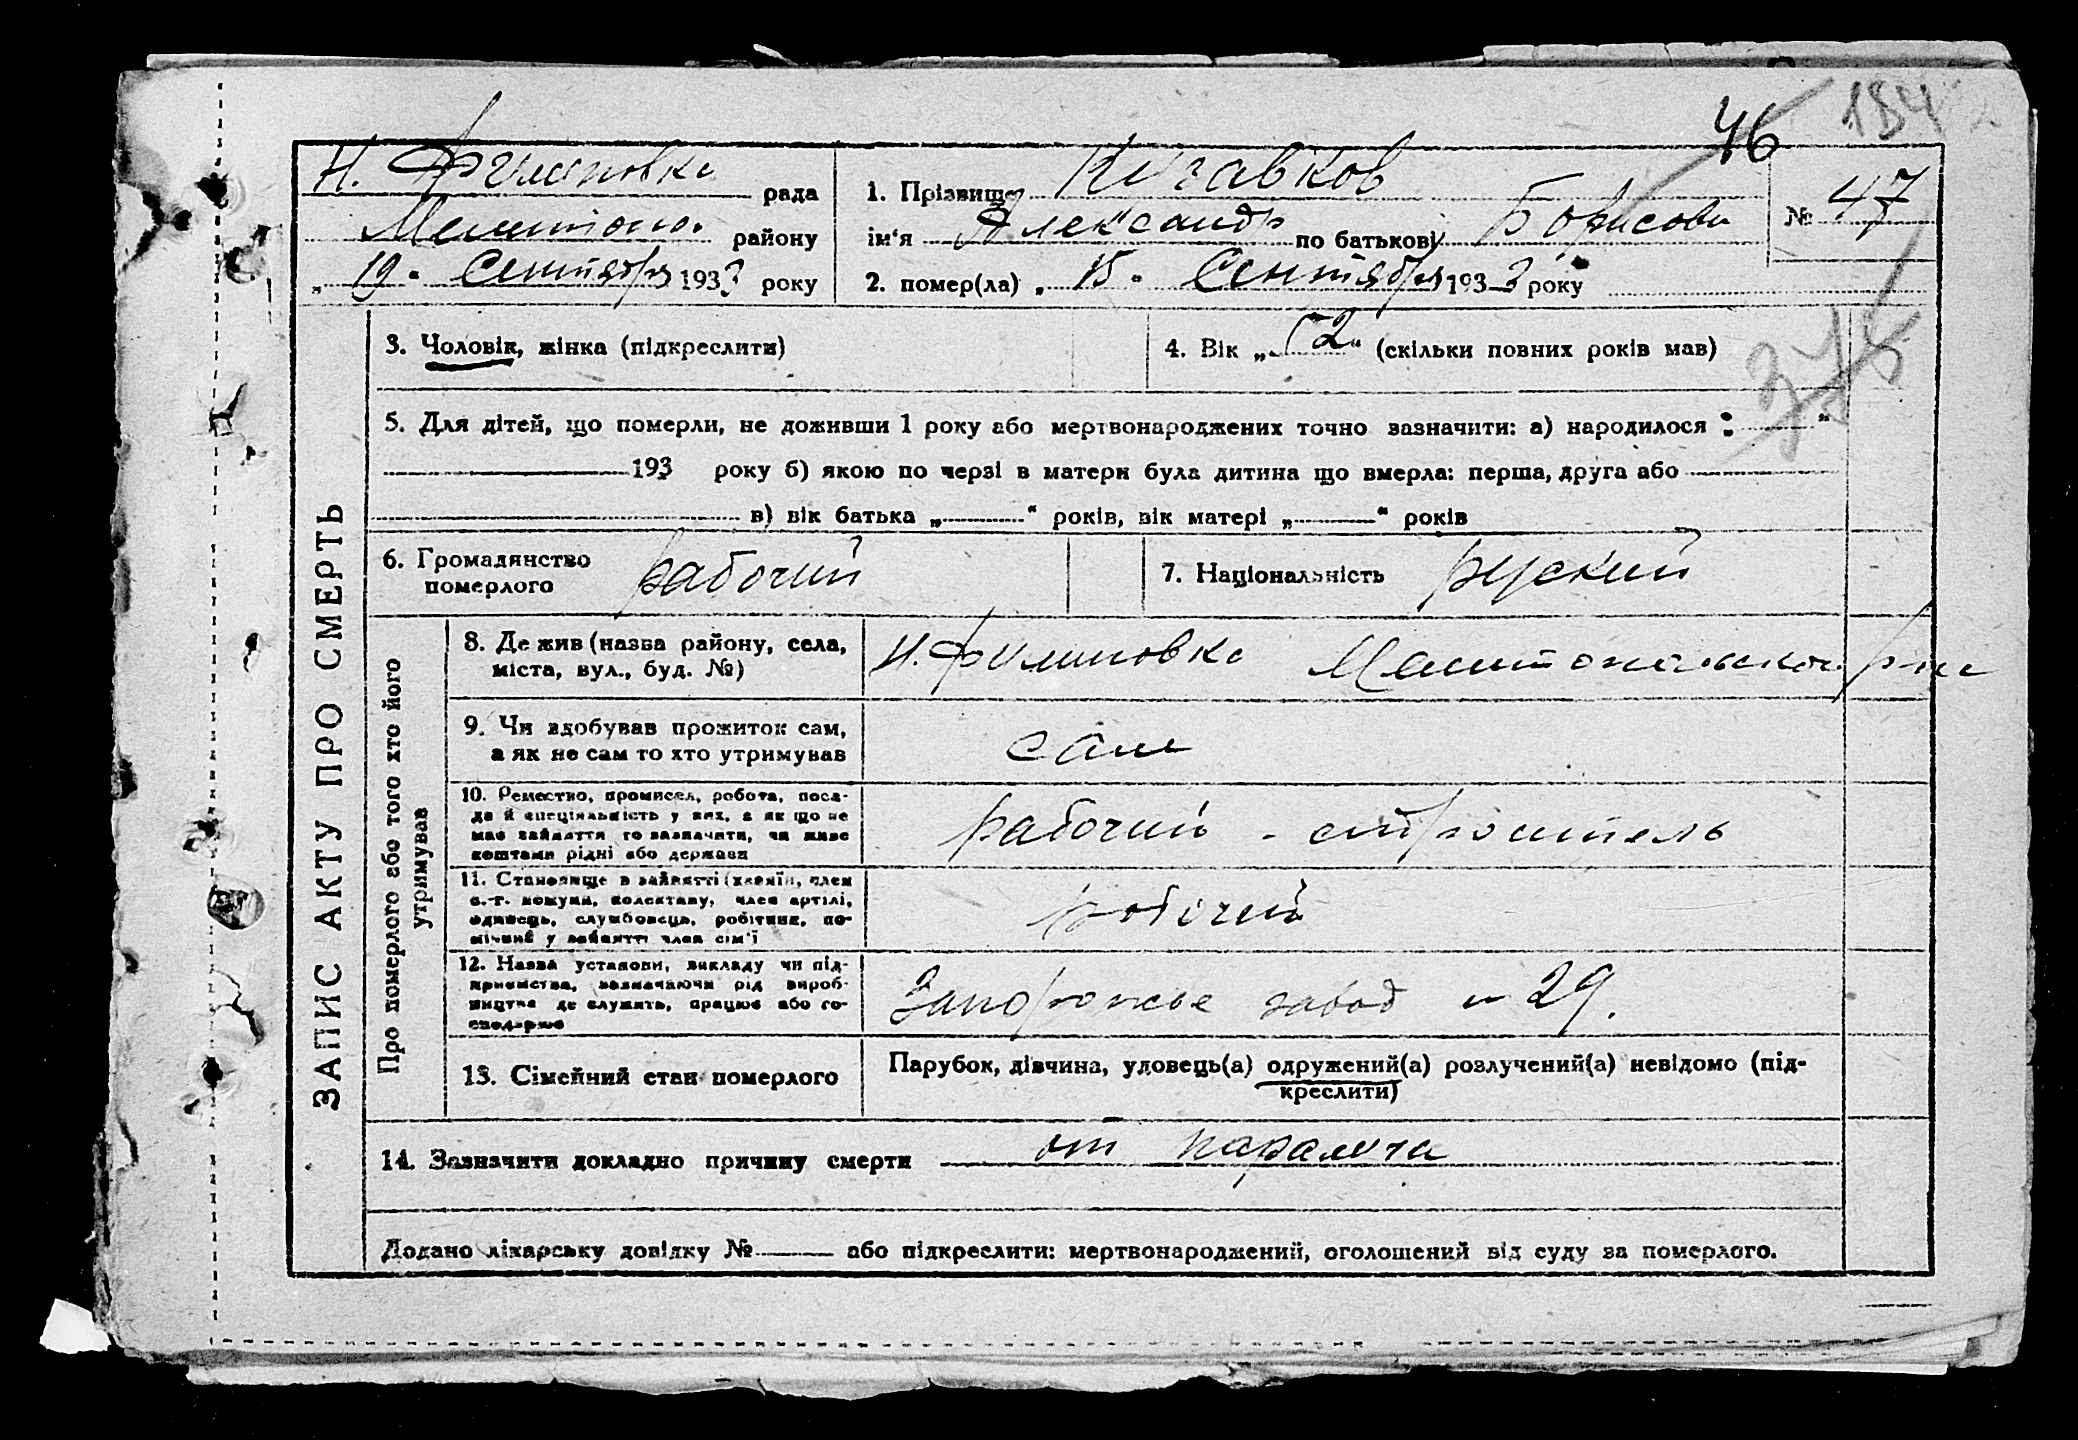 46
184
Н. Филиповка рада
Мелитопо. району
„ 19 " Сентября 1933 року
1. Прізвище
ім'я Александр по батькові Борисови
№ 47
2. помер(ла) „ 15 " Сентября 1933 року
ЗАПИС АКТУ ПРО СМЕРТЬ
3. Чоловік, жінка (підкреслити)
4. Вік „ 52 " (скільки повних років мав)
5. Для дітей, що померли, не доживши 1 року або мертвонароджених точно зазначити: а) народилося
193 року б) якою по черзі в матери була дитина що вмерла: перша, друга або
в) вік батька „ " років, вік матері „ " років
6. Громадянство
померлого рабочий
7. Національність руский
Про померлого або того хто його
утримував
8. Де жив (назва району, села,
міста, вул., буд. №)
Н. Филиповка Мелитопольского р-на
9. Чи здобував прожиток сам,
а як не сам то хто утримував
сам
10. Ремество, промисел, робота, поса-
да й спеціяльність у них, а як що не
має зайняття то зазначити, чи живе
коштами рідні або держави
рабочий - строитель
11. Становище в зайнятті (хазяїн, член
с.-г. комуни, колективу, член артілі,
одинець, службовець, робітник, по-
мічний у зайнятті член сім'ї
рабочий
12. Назва установи, закладу чи під-
приємства, зазначаючи рід вироб-
ництва де служить, працює або го-
сподарює
Запорожье завод № 29.
13. Сімейний стан померлого
Парубок, дівчина, удовець(а) одружений(а) розлучений(а) невідомо (під-
креслити)
14. Зазначити докладно причину смерти от паралича
Додано лікарську довідку № або підкреслити: мертвонароджений, оголошений від суду за померлого.